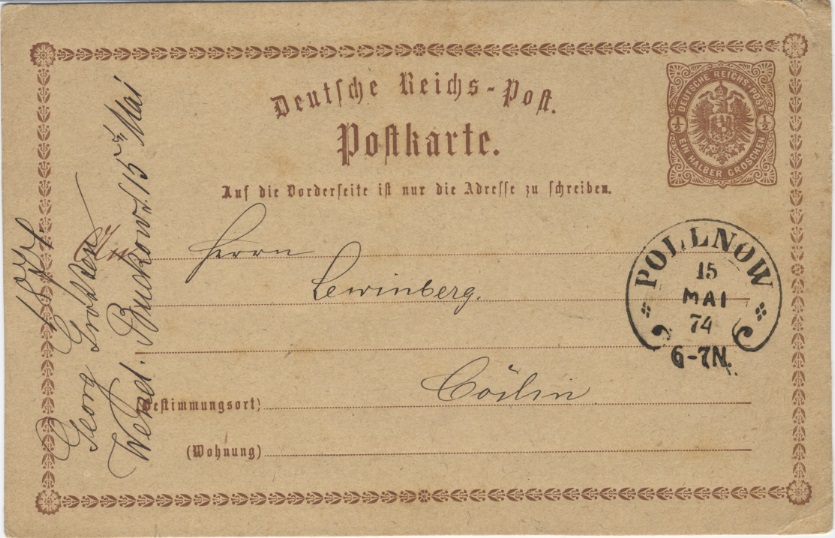 Deutsche Reichs-Post.
Postkarte.
Auf die Vorderseite ist nur die Adresse zu schreiben.
DEUTSCHE REICHS-POST
½ ½
EIN HALBER GROSCHEN
An
Herrn
Lewinberg.
Cöslin
Bestimmungsort)
(Wohnung)
POLLNOW
15
MAI
74
6-7N.
Georg
Wend. Buckow d. 15 Mai
1874